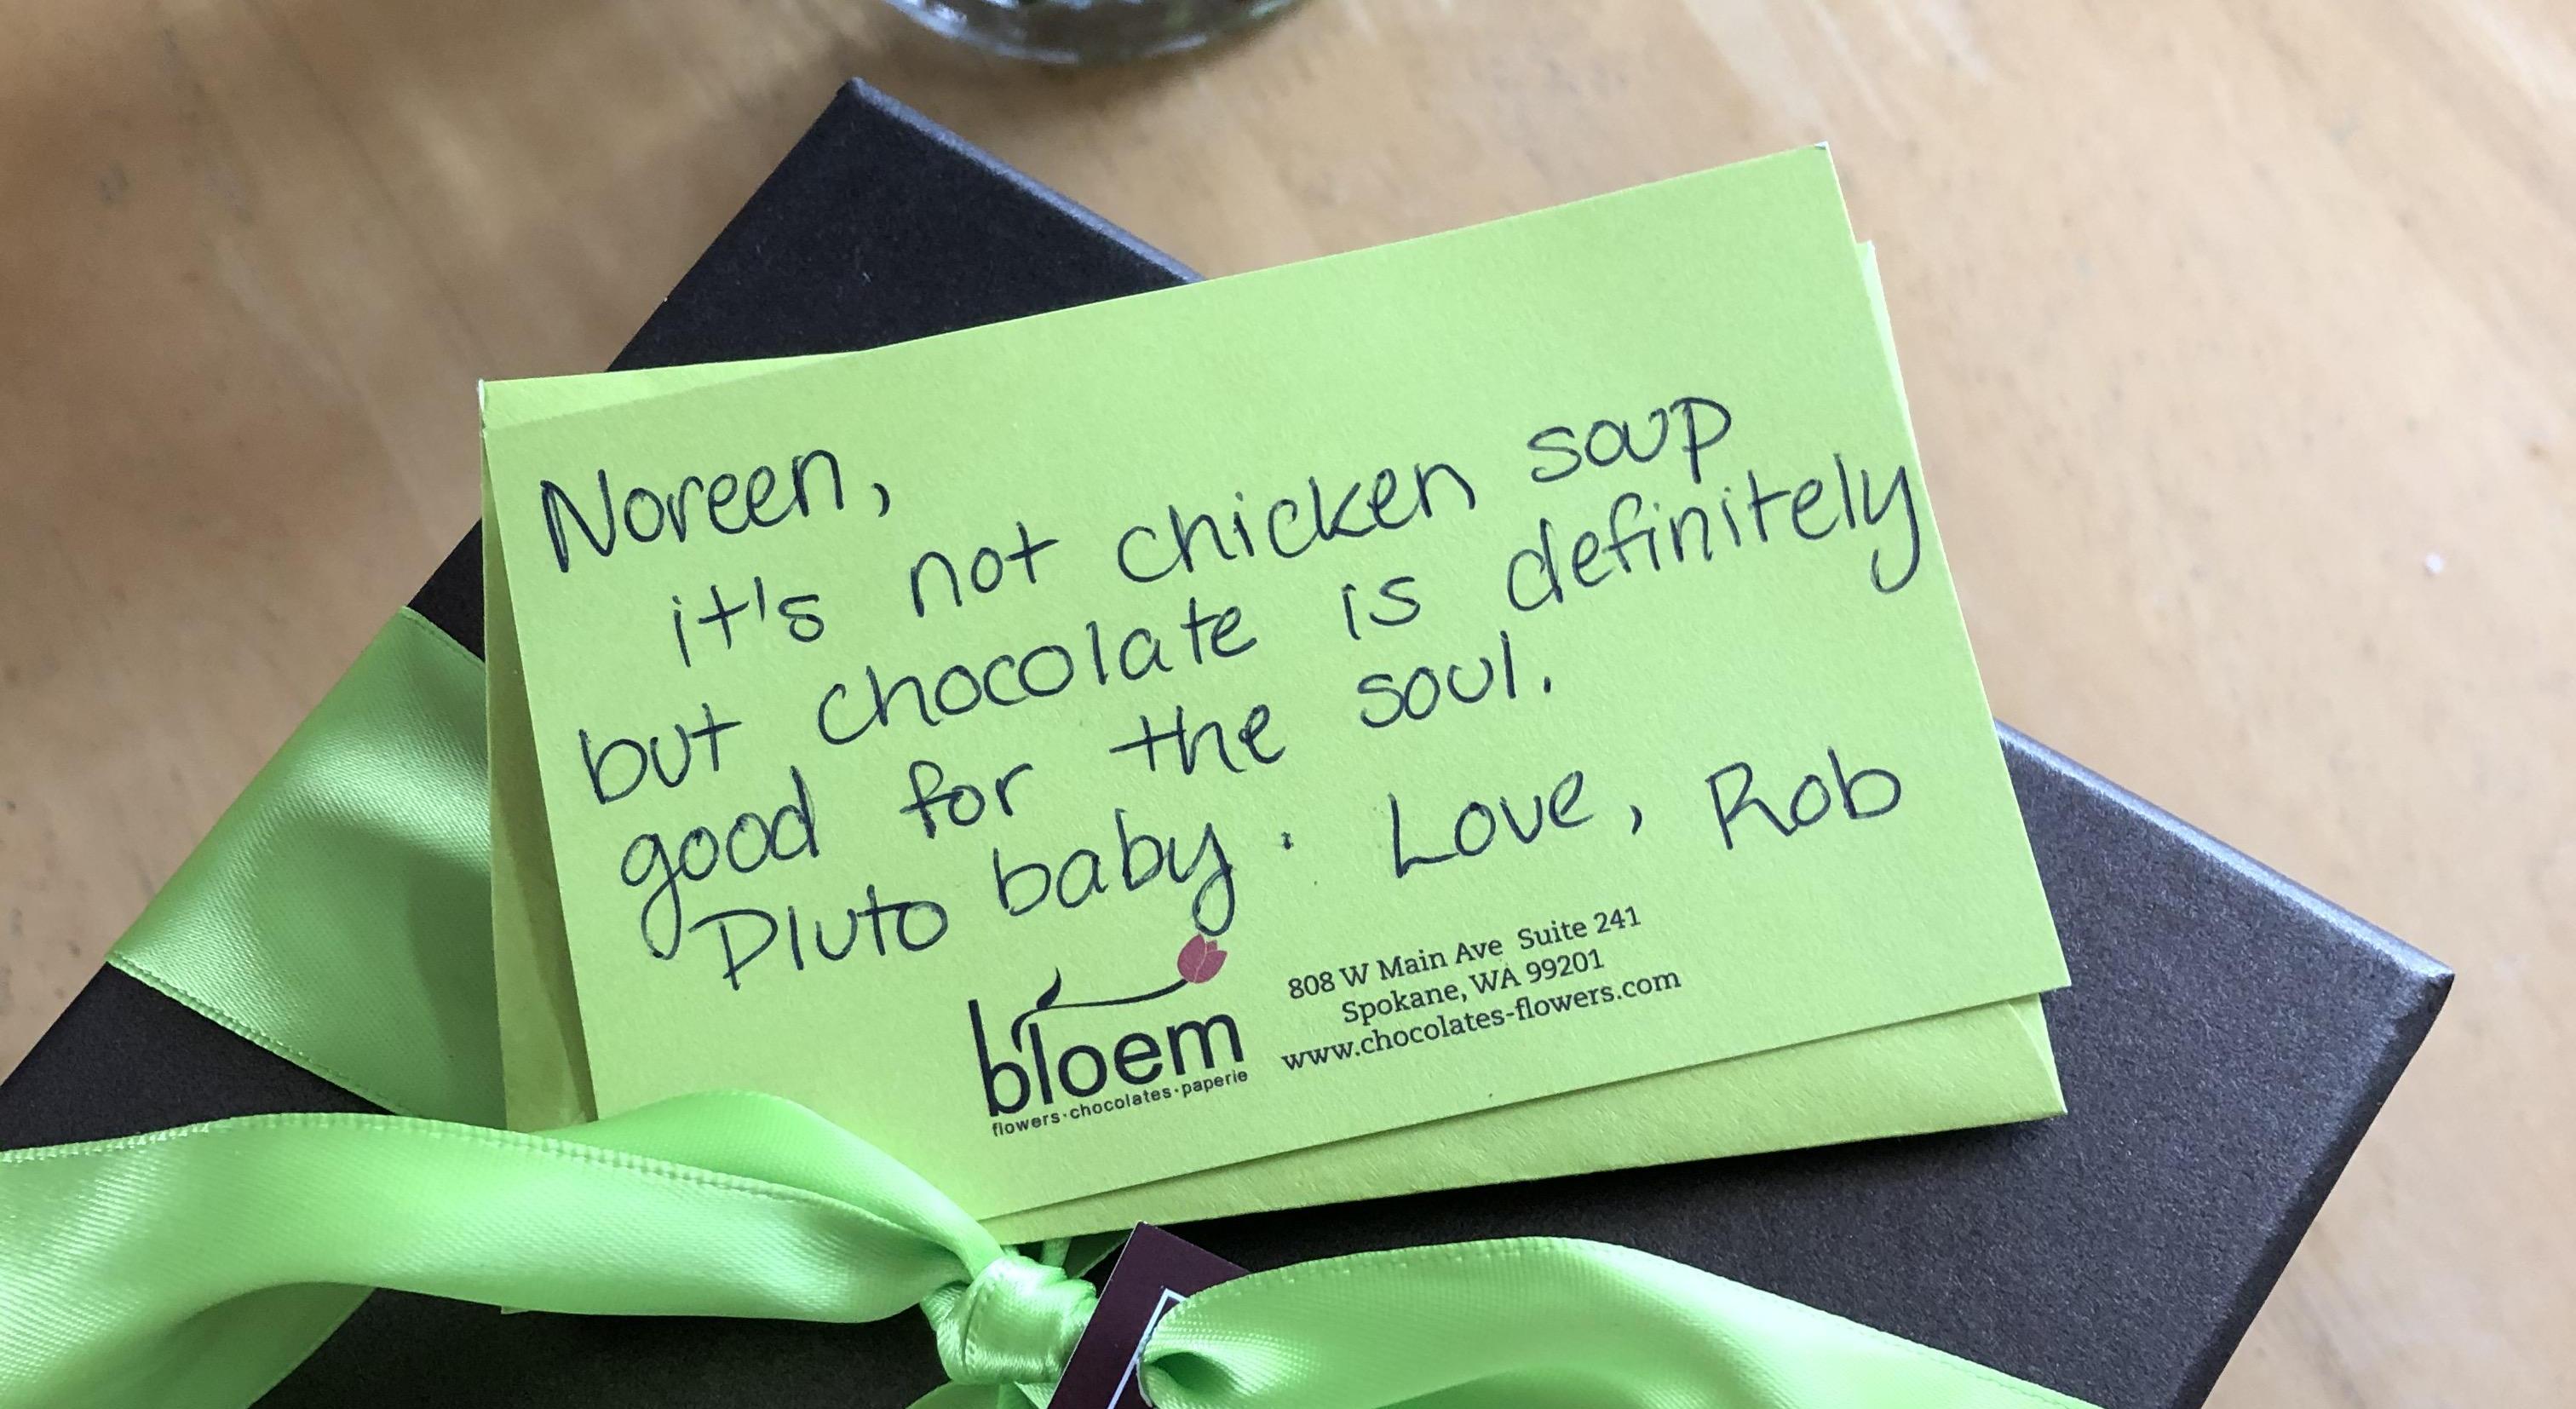 Noreen,
it's not chicken soup
but chocolate is definitely
good for the soul.
Pluto baby. Love, Rob
bloem
flowers·chocolates·paperie
808 W Main Ave Suite 241
Spokane, WA 99201
www.chocolates-flowers.com